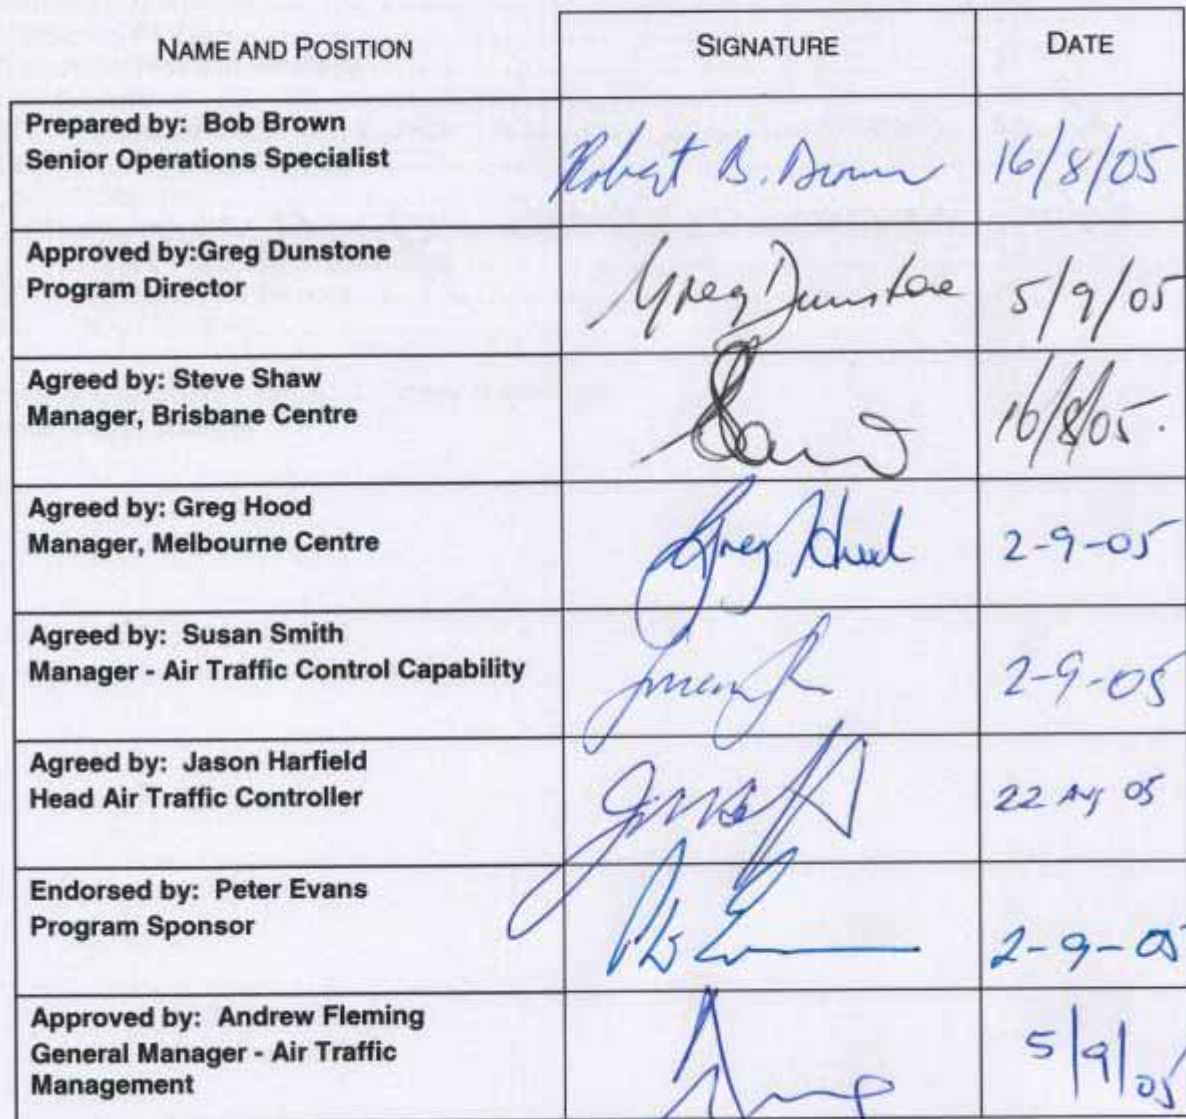 NAME AND POSITION SIGNATURE DATE
Prepared by: Bob Brown
Senior Operations Specialist
Robert B. Brown 16/8/05
Approved by:Greg Dunstone
Program Director
Greg Dunstone 5/9/05
Agreed by: Steve Shaw
Manager, Brisbane Centre
16/8/05.
Agreed by: Greg Hood
Manager, Melbourne Centre
Greg Hood 2-9-05
Agreed by: Susan Smith
Manager - Air Traffic Control Capability
2-9-05
Agreed by: Jason Harfield
Head Air Traffic Controller
22 Aug 05
Endorsed by: Peter Evans
Program Sponsor
2-9-05
Approved by: Andrew Fleming
General Manager - Air Traffic
Management
5/9/05